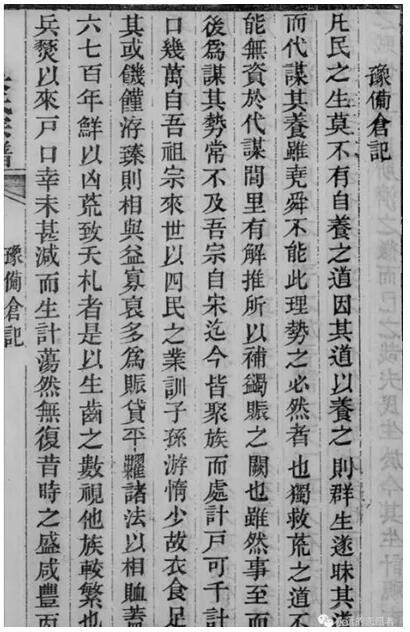 豫備倉記
凡民之生莫不有自養之道因其道以養之則群生遂昧其道
而代謀其養雖堯舜不能此理勢之必然者也獨救荒之道不
能無資於代謀閭里有解推所以補蠲賑之闕也雖然事至而
後為謀其勢常不及吾宗自宋迄今皆聚族而處計戶可千計
口幾萬自吾祖宗來世以四民之業訓子孫游惰少故衣食足
其或饑饉洊臻則相與益寡裒多為賑貸平糶諸法以相賉蓋
六七百年鮮以凶荒致夭札者是以生齒之數視他族較繁也
兵燹以來戶口幸未甚減而生計蕩然無復昔時之盛咸豐丙
豫備倉記
的志愿者